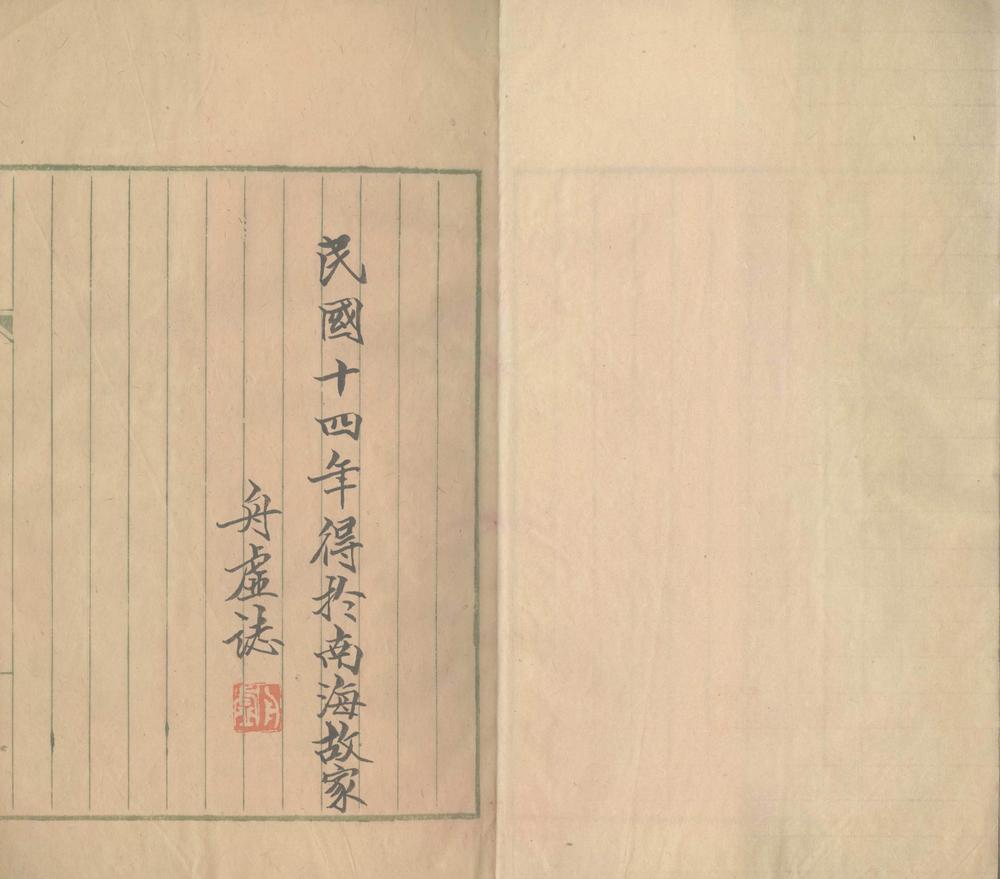 民國十四年得於南海故家
舟虛誌
舟虛